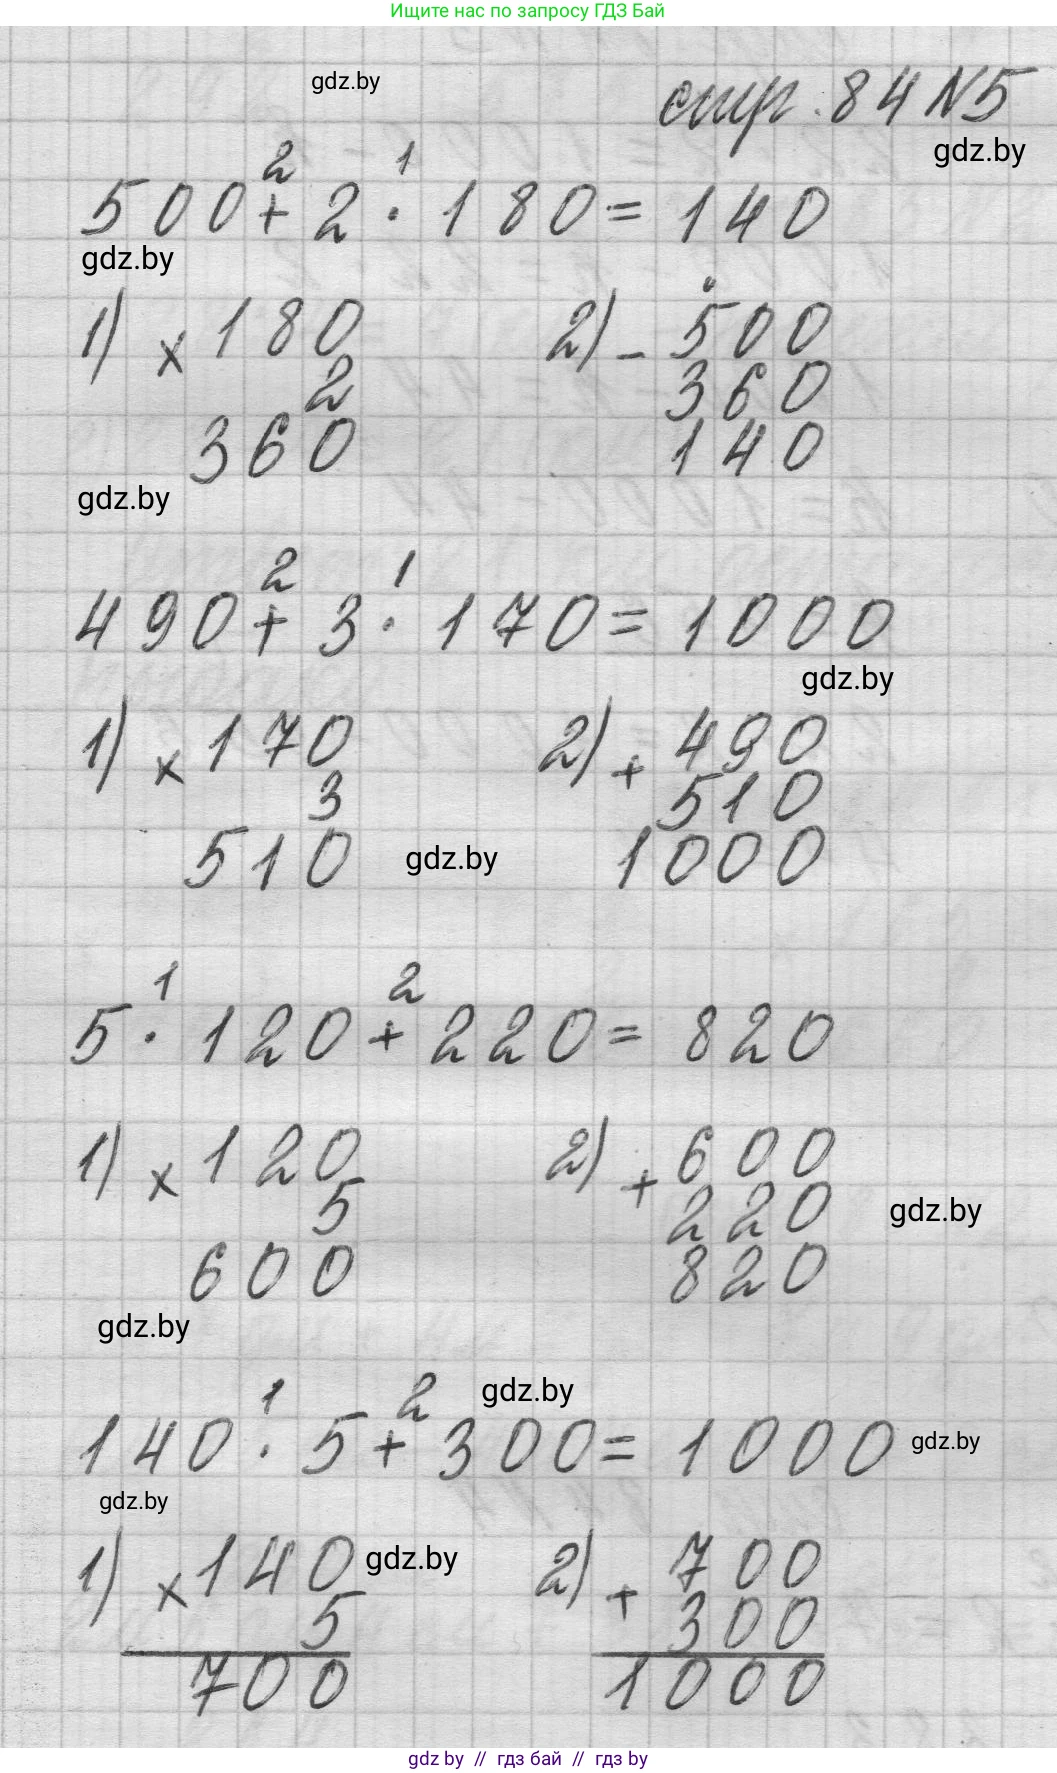 Ищите нас по запросу ГДЗ Бай
gdz.by
стр. 84 №5
gdz.by
2 1
500 + 2 · 180 = 140
gdz.by
1) × 180 2) - 500
2 360
360 140
gdz.by
2 1
490 + 3 · 170 = 1000
gdz.by
1) × 170 2) + 490
3 510
510 gdz.by 1000
1 2
5 · 120 + 220 = 820
1) × 120 2) + 600
5 220 gdz.by
600 820
gdz.by
1 2 gdz.by
140 · 5 + 300 = 1000 gdz.by
gdz.by
1) × 140 gdz.by 2) + 700
5 300
700 1000
gdz.by // гдз бай // гдз by